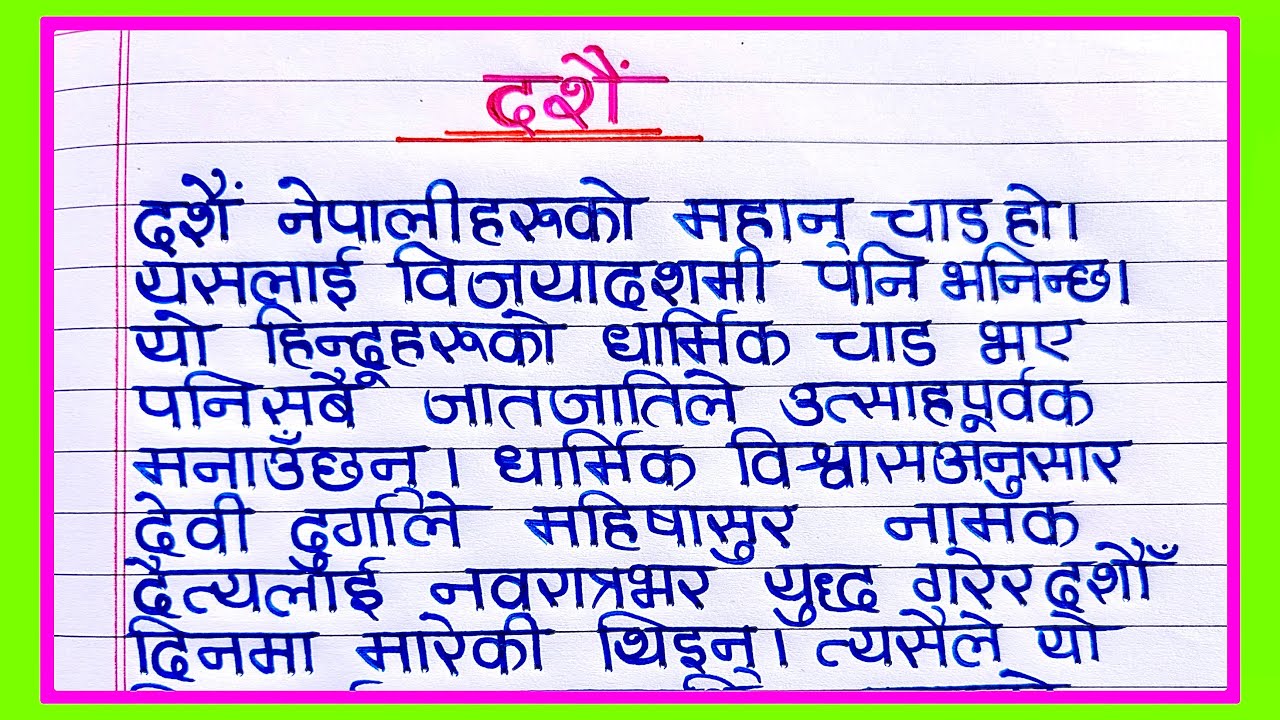 दशैं
दशैं नेपालीहरूको महान् चाड हो।
यसलाई विजयादशमी पनि भनिन्छ।
यो हिन्दूहरूको धार्मिक चाड भए
पनि सबै जातजातिले उत्साहपूर्वक
मनाउँछन्। धार्मिक विश्वासअनुसार
देवी दुर्गाले महिषासुर नामक
दैत्यलाई नवरात्रभर युद्ध गरेर दशौँ
दिनमा मारेकी थिइन्। त्यसैले यो